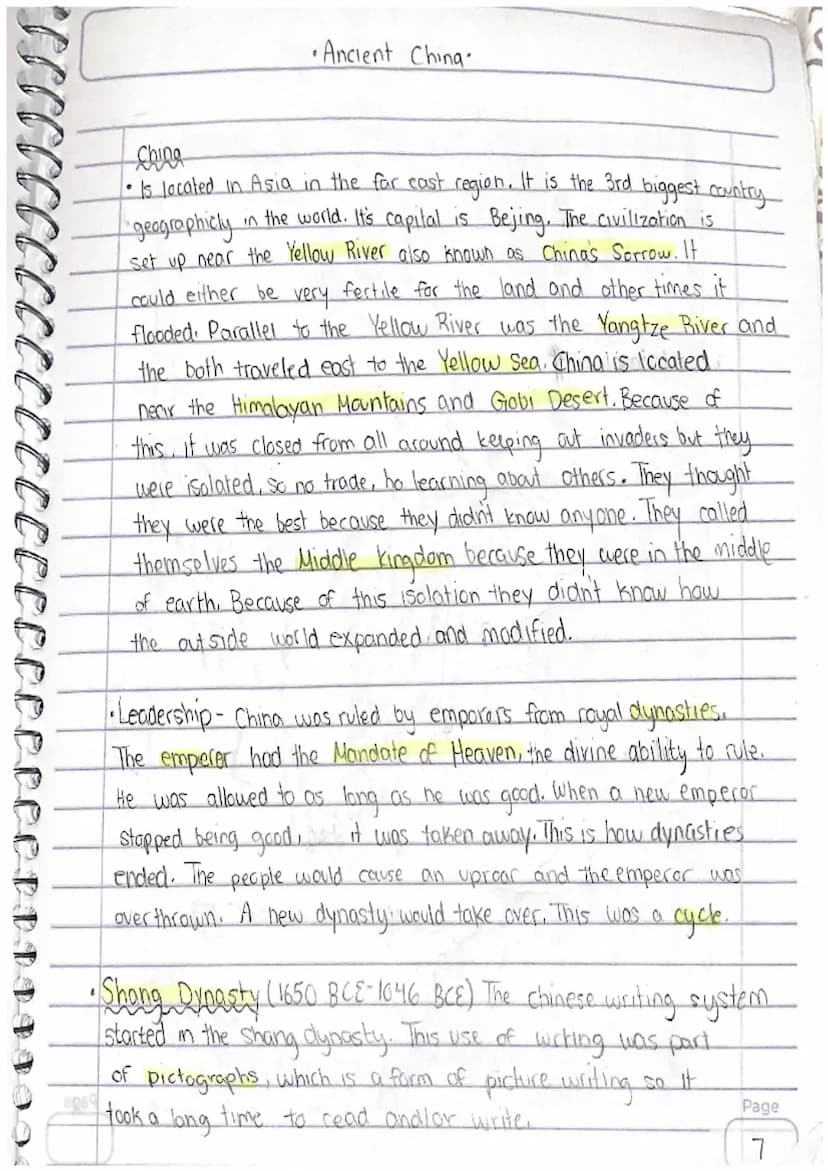 • Ancient China •
China
• Is located in Asia in the far east region. It is the 3rd biggest country
geographicly in the world. It's capital is Bejing. The civilization is
set up near the Yellow River also known as China's Sorrow. It
could either be very fertile for the land and other times it
flooded. Parallel to the Yellow River was the Yangtze River and
the both traveled east to the Yellow Sea. China is located
near the Himalayan Mountains and Gobi Desert. Because of
this, it was closed from all around keeping out invaders but they
were isolated, so no trade, no learning about others. They thought
they were the best because they didn't know anyone. They called
themselves the Middle Kingdom because they were in the middle
of earth. Because of this isolation they didn't know how
the outside world expanded and modified.
• Leadership - China was ruled by emporors from royal dynasties.
The emperor had the Mandate of Heaven, the divine ability to rule.
He was allowed to as long as he was good. When a new emperor
stopped being good, it was taken away. This is how dynasties
ended. The people would cause an uproar and the emperor was
overthrown. A new dynasty would take over. This was a cycle.
• Shang Dynasty (1650 BCE-1046 BCE) The Chinese writing system
started in the Shang dynasty. This use of writing was part
of pictographs, which is a form of picture writing so it
took a long time to read and/or write.
Page
7